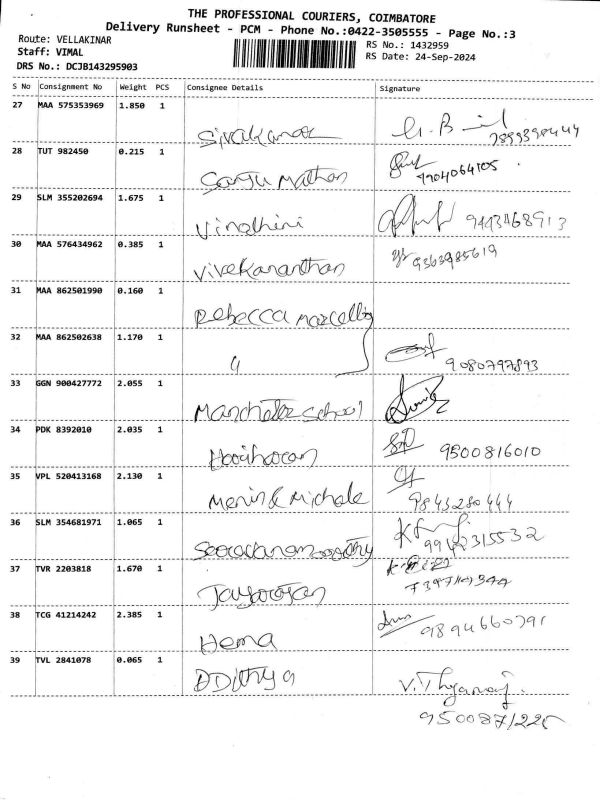 THE PROFESSIONAL COURIERS, COIMBATORE
Delivery Runsheet - PCM - Phone No.:0422-3505555 - Page No.:3
Route: VELLAKINAR
RS No.: 1432959
Staff: VIMAL
RS Date: 24-Sep-2024
DRS No.: DCJB143295903
S No Consignment No Weight PCS Consignee Details Signature
27 MAA 575353969 1.850 1
Sivakandr
28 TUT 982450 0.215 1
9904064105
Mathan
29 SLM 355202694 1.675 1
Vinothini 9443468913
30 MAA 576434962 0.385 1
Vivekananthan 9363985619
31 MAA 862501990 0.160 1
Rebecca Marcellin
32 MAA 862502638 1.170 1
9080797893
33 GGN 900427772 2.055 1
Manchester School
34 PDK 8392010 2.035 1
Hariharan 9500816010
35 VPL 520413168 2.130 1
Menin & Michale 9843280444
36 SLM 354681971 1.065 1
9942315532
37 TVR 2203818 1.670 1
38 TCG 41214242 2.385 1
Hema 9894660791
39 TVL 2841078 0.065 1
Adithya V. Thyanaraj
950087/225